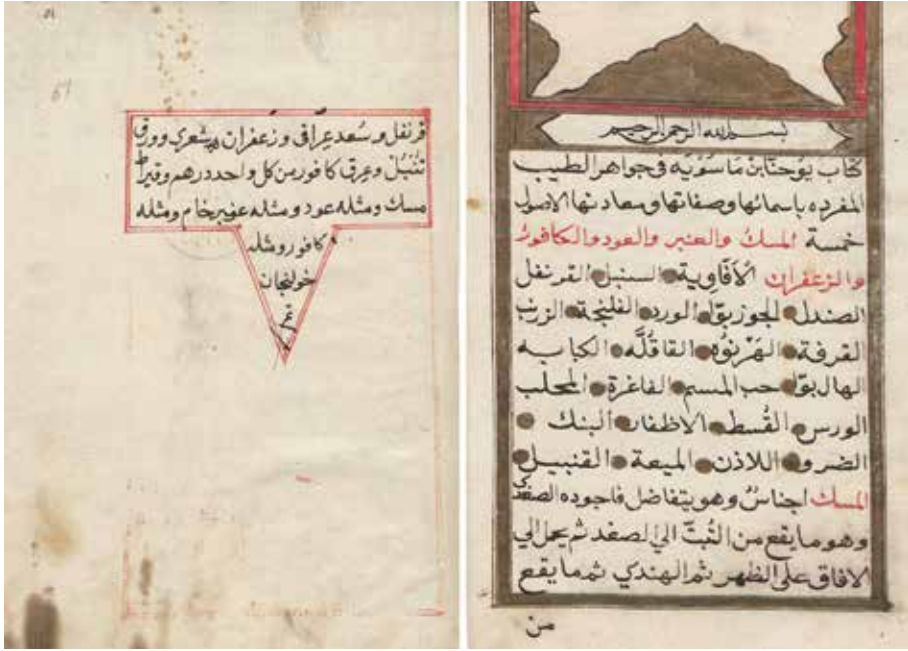 بسم الله الرحمن الرحيم
كتاب يوحنا بن ماسويه في جواهر الطيب
المفرده باسمائها وصفاتها ومعادنها الاصول
خمسة المسك والعنبر والعود والكافور
والزعفران الأفاوية السنبل القرنفل
الصندل الجوزبوّا الورد الفلنجة الزرنب
القرفة الهَرْنوُه القاقُلَّه الكبابه
الهال بوّا حب المسم الفاغرة المحلب
الورس القُسط الاظفار البنك
الضرو اللاذن الميعة القنبيل
المسك اجناسٌ وهو يتفاضل فاجوده الصغدي
وهو ما يقع من التُبتّ الي الصغد ثم يحمل الي
الافاق علي الظهر ثم الهندي ثم ما يقع
من
51
قرنفل و سُعد عراقي و زعفران شعري وورق
تنبُل وعرق كافور من كل واحد درهم وقيراط
مسك ومثله عود ومثله عنبر خام ومثله
كافور ومثله
خولنجان
تم